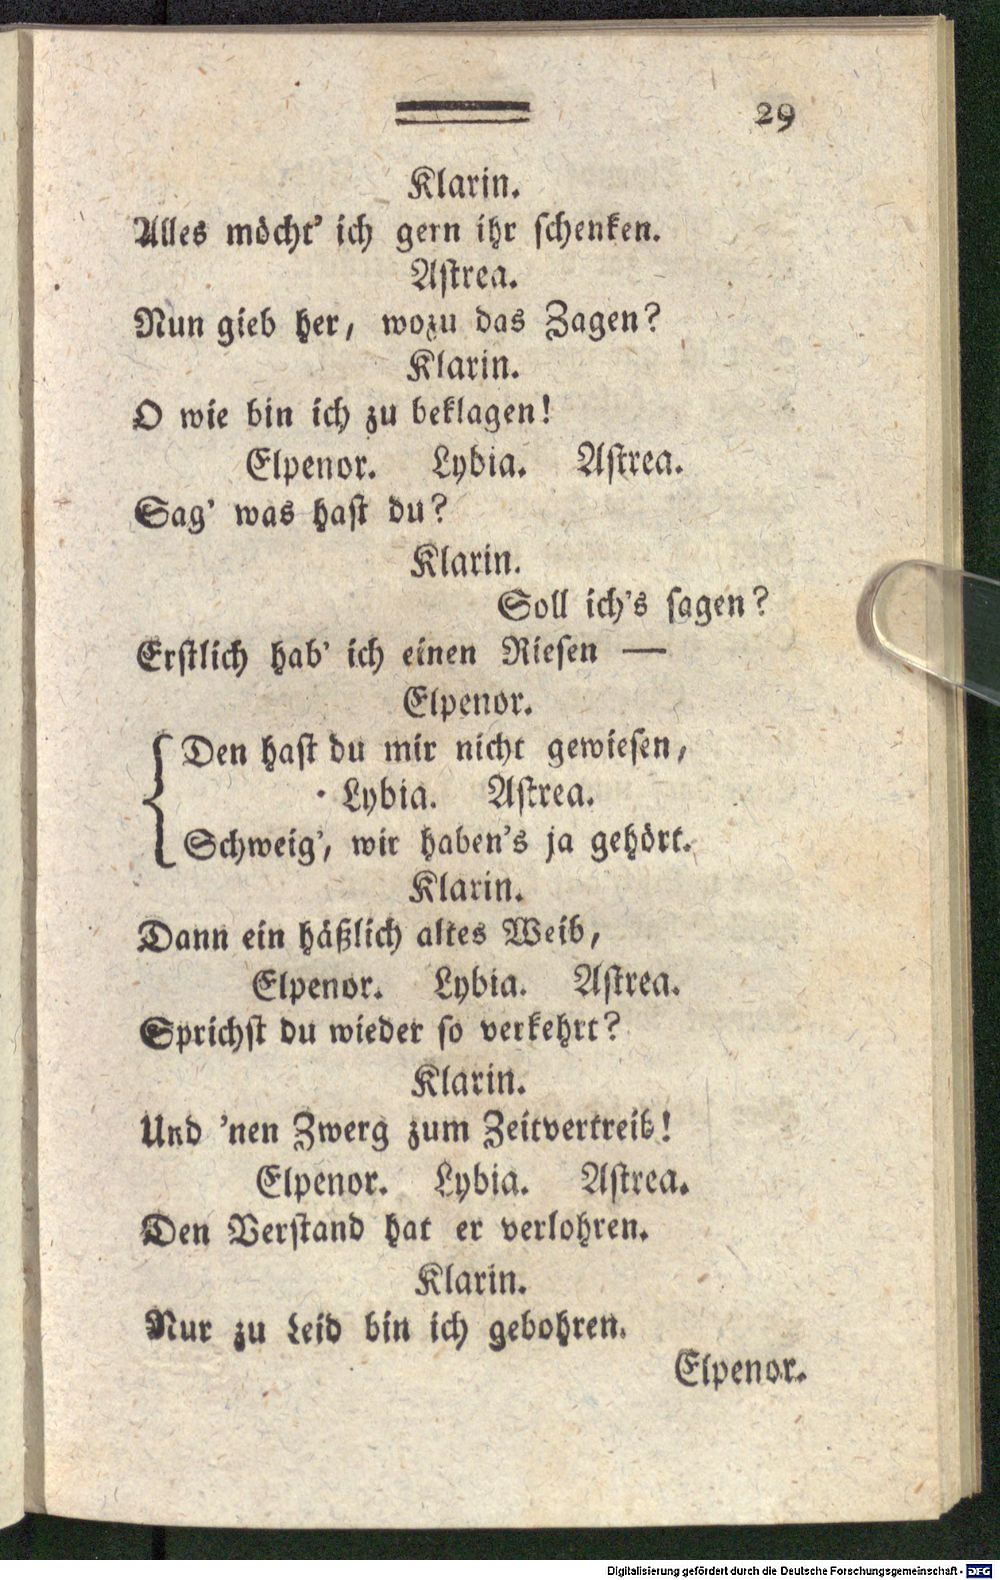 29
Klarin.
Alles möcht' ich gern ihr schenken.
Astrea.
Nun gieb her, wozu das Zagen?
Klarin.
O wie bin ich zu beklagen!
Elpenor. Lybia. Astrea.
Sag' was hast du?
Klarin.
Soll ich's sagen?
Erstlich hab' ich einen Riesen —
Elpenor.
Den hast du mir nicht gewiesen,
Lybia. Astrea.
Schweig', wir haben's ja gehört.
Klarin.
Dann ein häßlich altes Weib,
Elpenor. Lybia. Astrea.
Sprichst du wieder so verkehrt?
Klarin.
Und 'nen Zwerg zum Zeitvertreib!
Elpenor. Lybia. Astrea.
Den Verstand hat er verlohren.
Klarin.
Nur zu Leid bin ich gebohren.
Elpenor.
Digitalisierung gefördert durch die Deutsche Forschungsgemeinschaft - DFG